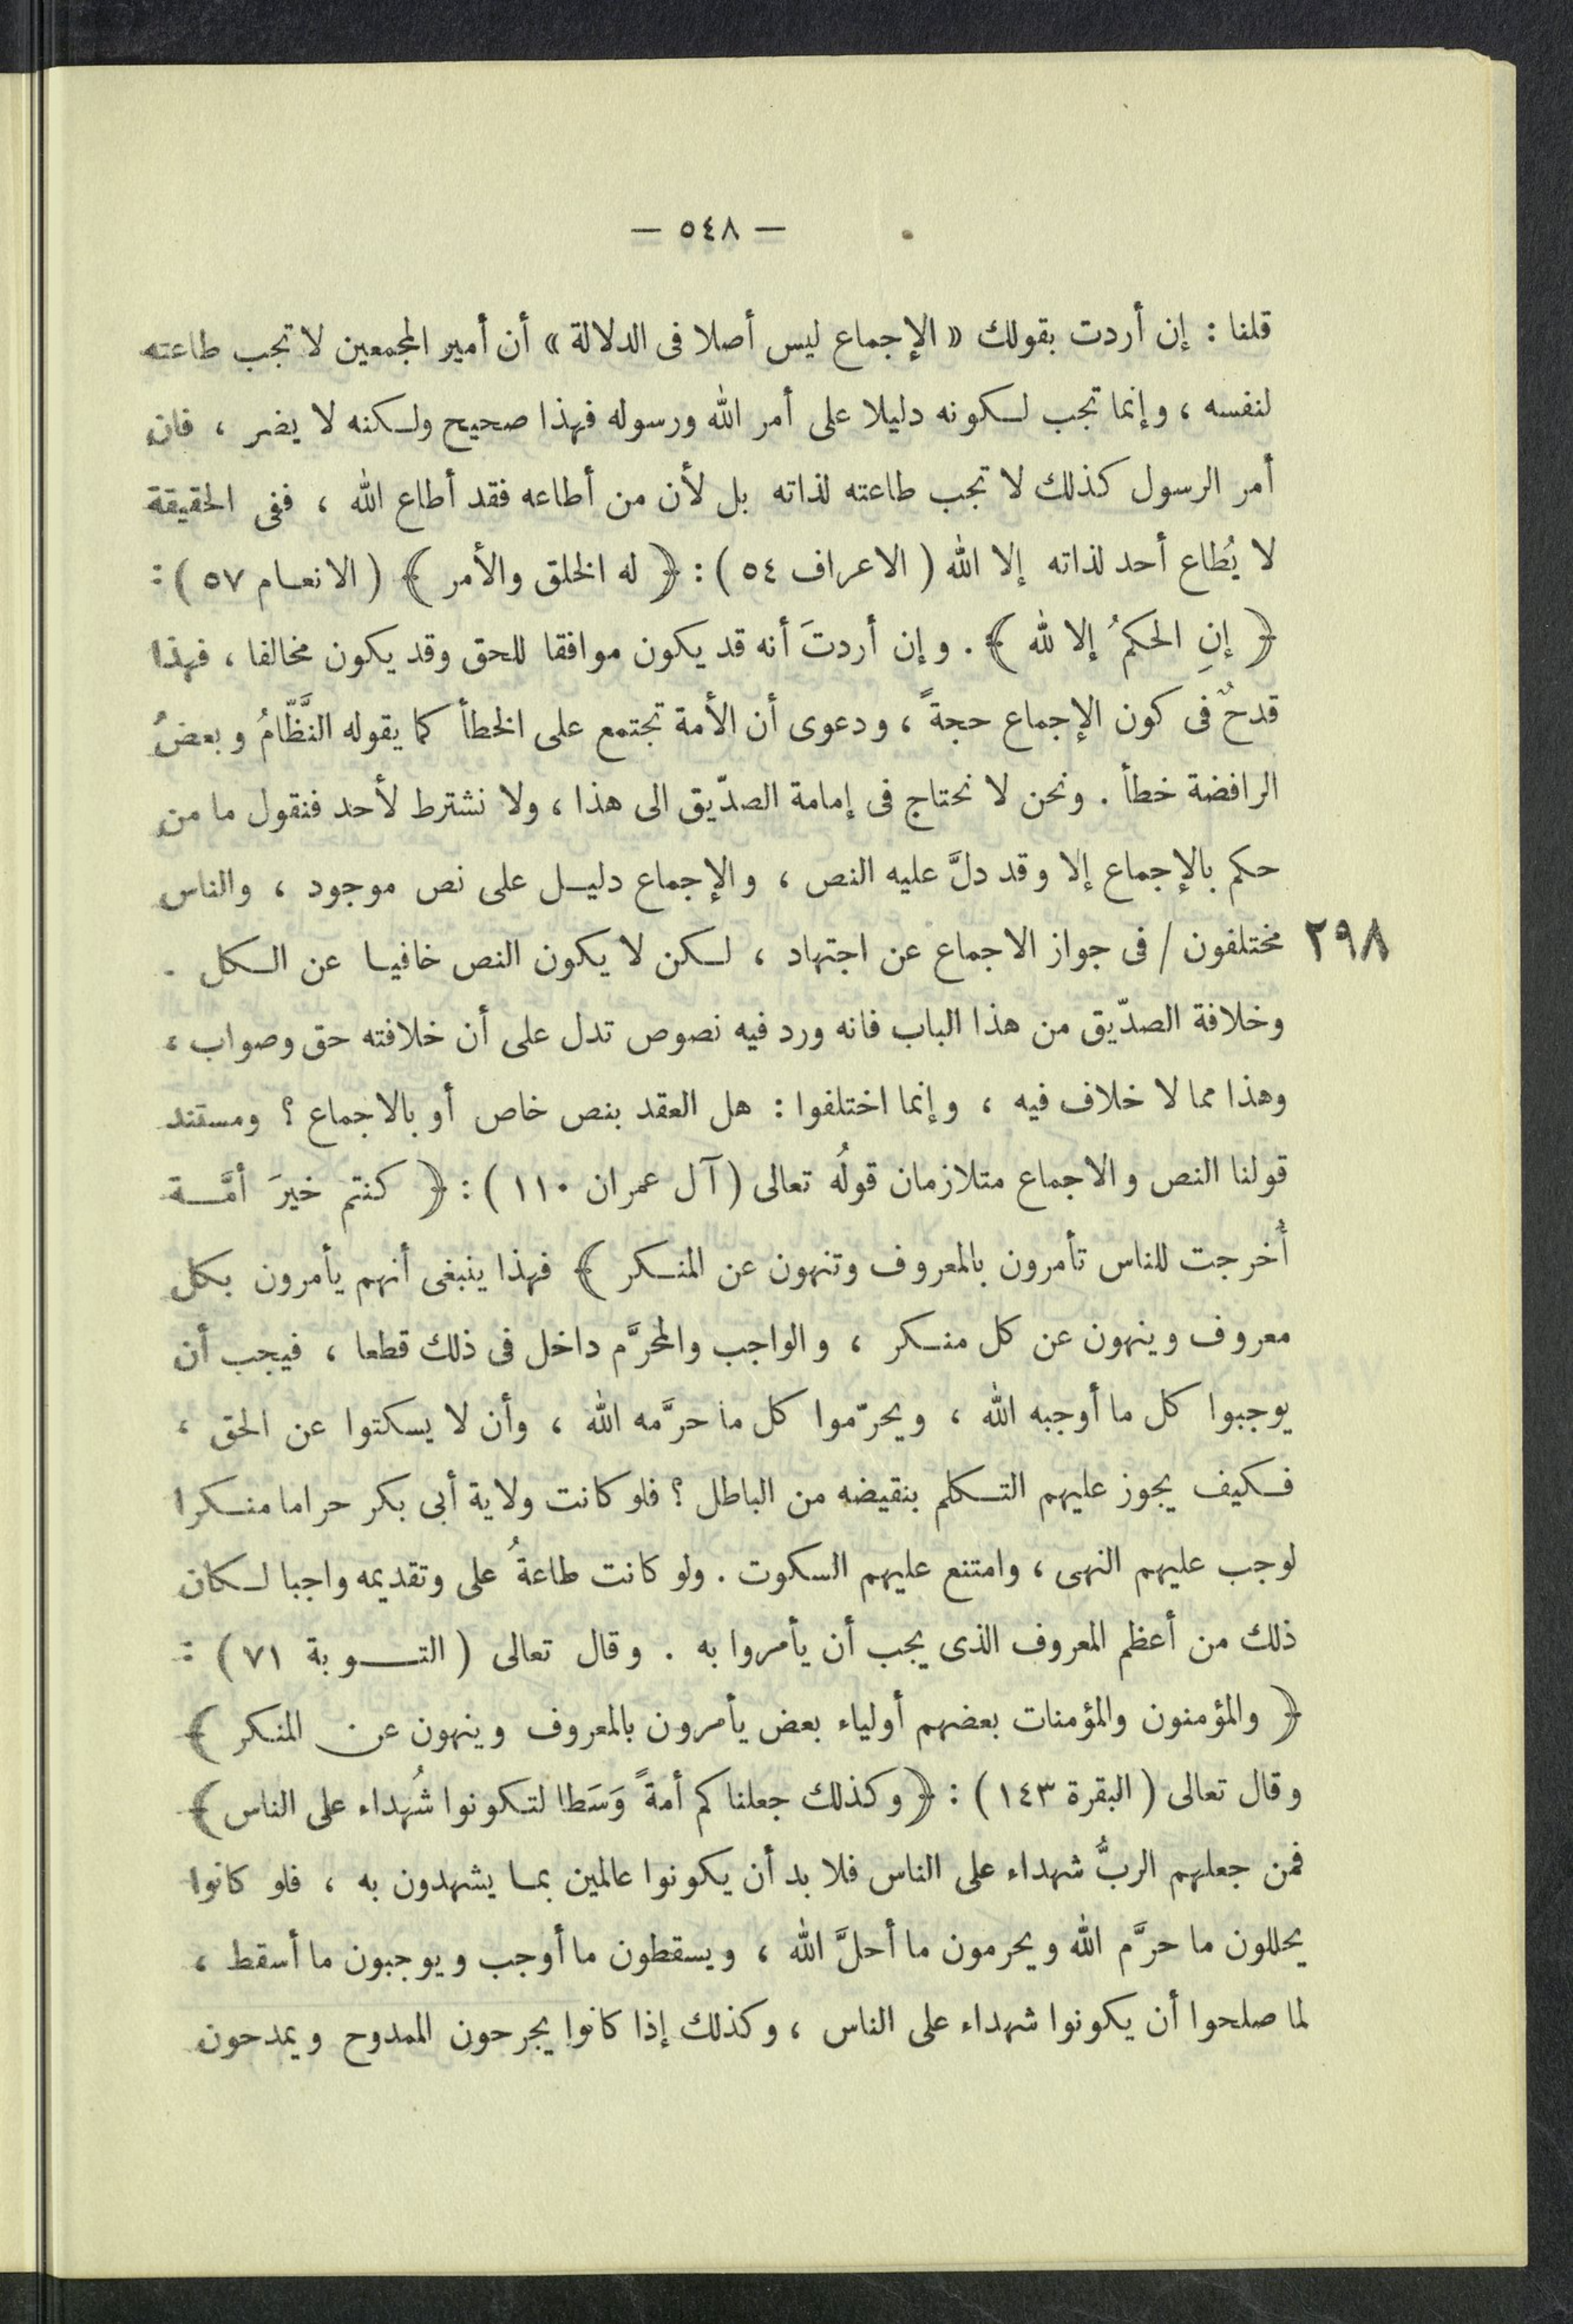 — ٥٤٨ —
قلنا : إن أردت بقولك « الإجماع ليس أصلا فى الدلالة » أن أمير المجمعين لا تجب طاعته
لنفسه ، وإنما تجب لكونه دليلا على أمر الله ورسوله فهذا صحيح ولكنه لا يضر ، فان
أمر الرسول كذلك لا تجب طاعته لذاته بل لأن من أطاعه فقد أطاع الله ، ففى الحقيقة
لا يُطاع أحد لذاته إلا الله ( الاعراف ٥٤ ) : ﴿ له الخلق والأمر ﴾ ( الانعام ٥٧ ) :
﴿ إنِ الحكمُ إلا لله ﴾ . وإن أردتَ أنه قد يكون موافقا للحق وقد يكون مخالفا ، فهذا
قدحٌ فى كون الإجماع حجةً ، ودعوى أن الأمة تجتمع على الخطأ كما يقوله النَّظّامُ وبعضُ
الرافضة خطأ . ونحن لا نحتاج فى إمامة الصدّيق الى هذا ، ولا نشترط لأحد فنقول ما من
حكم بالإجماع إلا وقد دلَّ عليه النص ، والإجماع دليل على نص موجود ، والناس
٢٩٨ مختلفون / فى جواز الاجماع عن اجتهاد ، لكن لا يكون النص خافيا عن الكل .
وخلافة الصدّيق من هذا الباب فانه ورد فيه نصوص تدل على أن خلافته حق وصواب ،
وهذا مما لا خلاف فيه ، وإنما اختلفوا : هل العقد بنص خاص أو بالاجماع ؟ ومستند
قولنا النص والاجماع متلازمان قولُه تعالى ( آل عمران ١١٠ ) : ﴿ كنتم خيرَ أمَّة
أُخرجت للناس تأمرون بالمعروف وتنهون عن المنكر ﴾ فهذا ينبغى أنهم يأمرون بكل
معروف وينهون عن كل منكر ، والواجب والمحرَّم داخل فى ذلك قطعا ، فيجب أن
يوجبوا كل ما أوجبه الله ، ويحرّموا كل ما حرَّمه الله ، وأن لا يسكتوا عن الحق ،
فكيف يجوز عليهم التكلم بنقيضه من الباطل ؟ فلو كانت ولاية أبى بكر حراما منكرا
لوجب عليهم النهى ، وامتنع عليهم السكوت . ولو كانت طاعةُ على وتقديمه واجبا لكان
ذلك من أعظم المعروف الذى يجب أن يأمروا به . وقال تعالى ( التوبة ٧١ ) :
﴿ والمؤمنون والمؤمنات بعضهم أولياء بعض يأمرون بالمعروف وينهون عن المنكر ﴾
وقال تعالى ( البقرة ١٤٣ ) : ﴿ وكذلك جعلناكم أمةً وَسَطا لتكونوا شُهداء على الناس ﴾
فمن جعلهم الربُّ شهداء على الناس فلا بد أن يكونوا عالمين بما يشهدون به ، فلو كانوا
يحللون ما حرَّم الله ويحرمون ما أحلَّ الله ، ويسقطون ما أوجب ويوجبون ما أسقط ،
لما صلحوا أن يكونوا شهداء على الناس ، وكذلك إذا كانوا يجرحون الممدوح ويمدحون